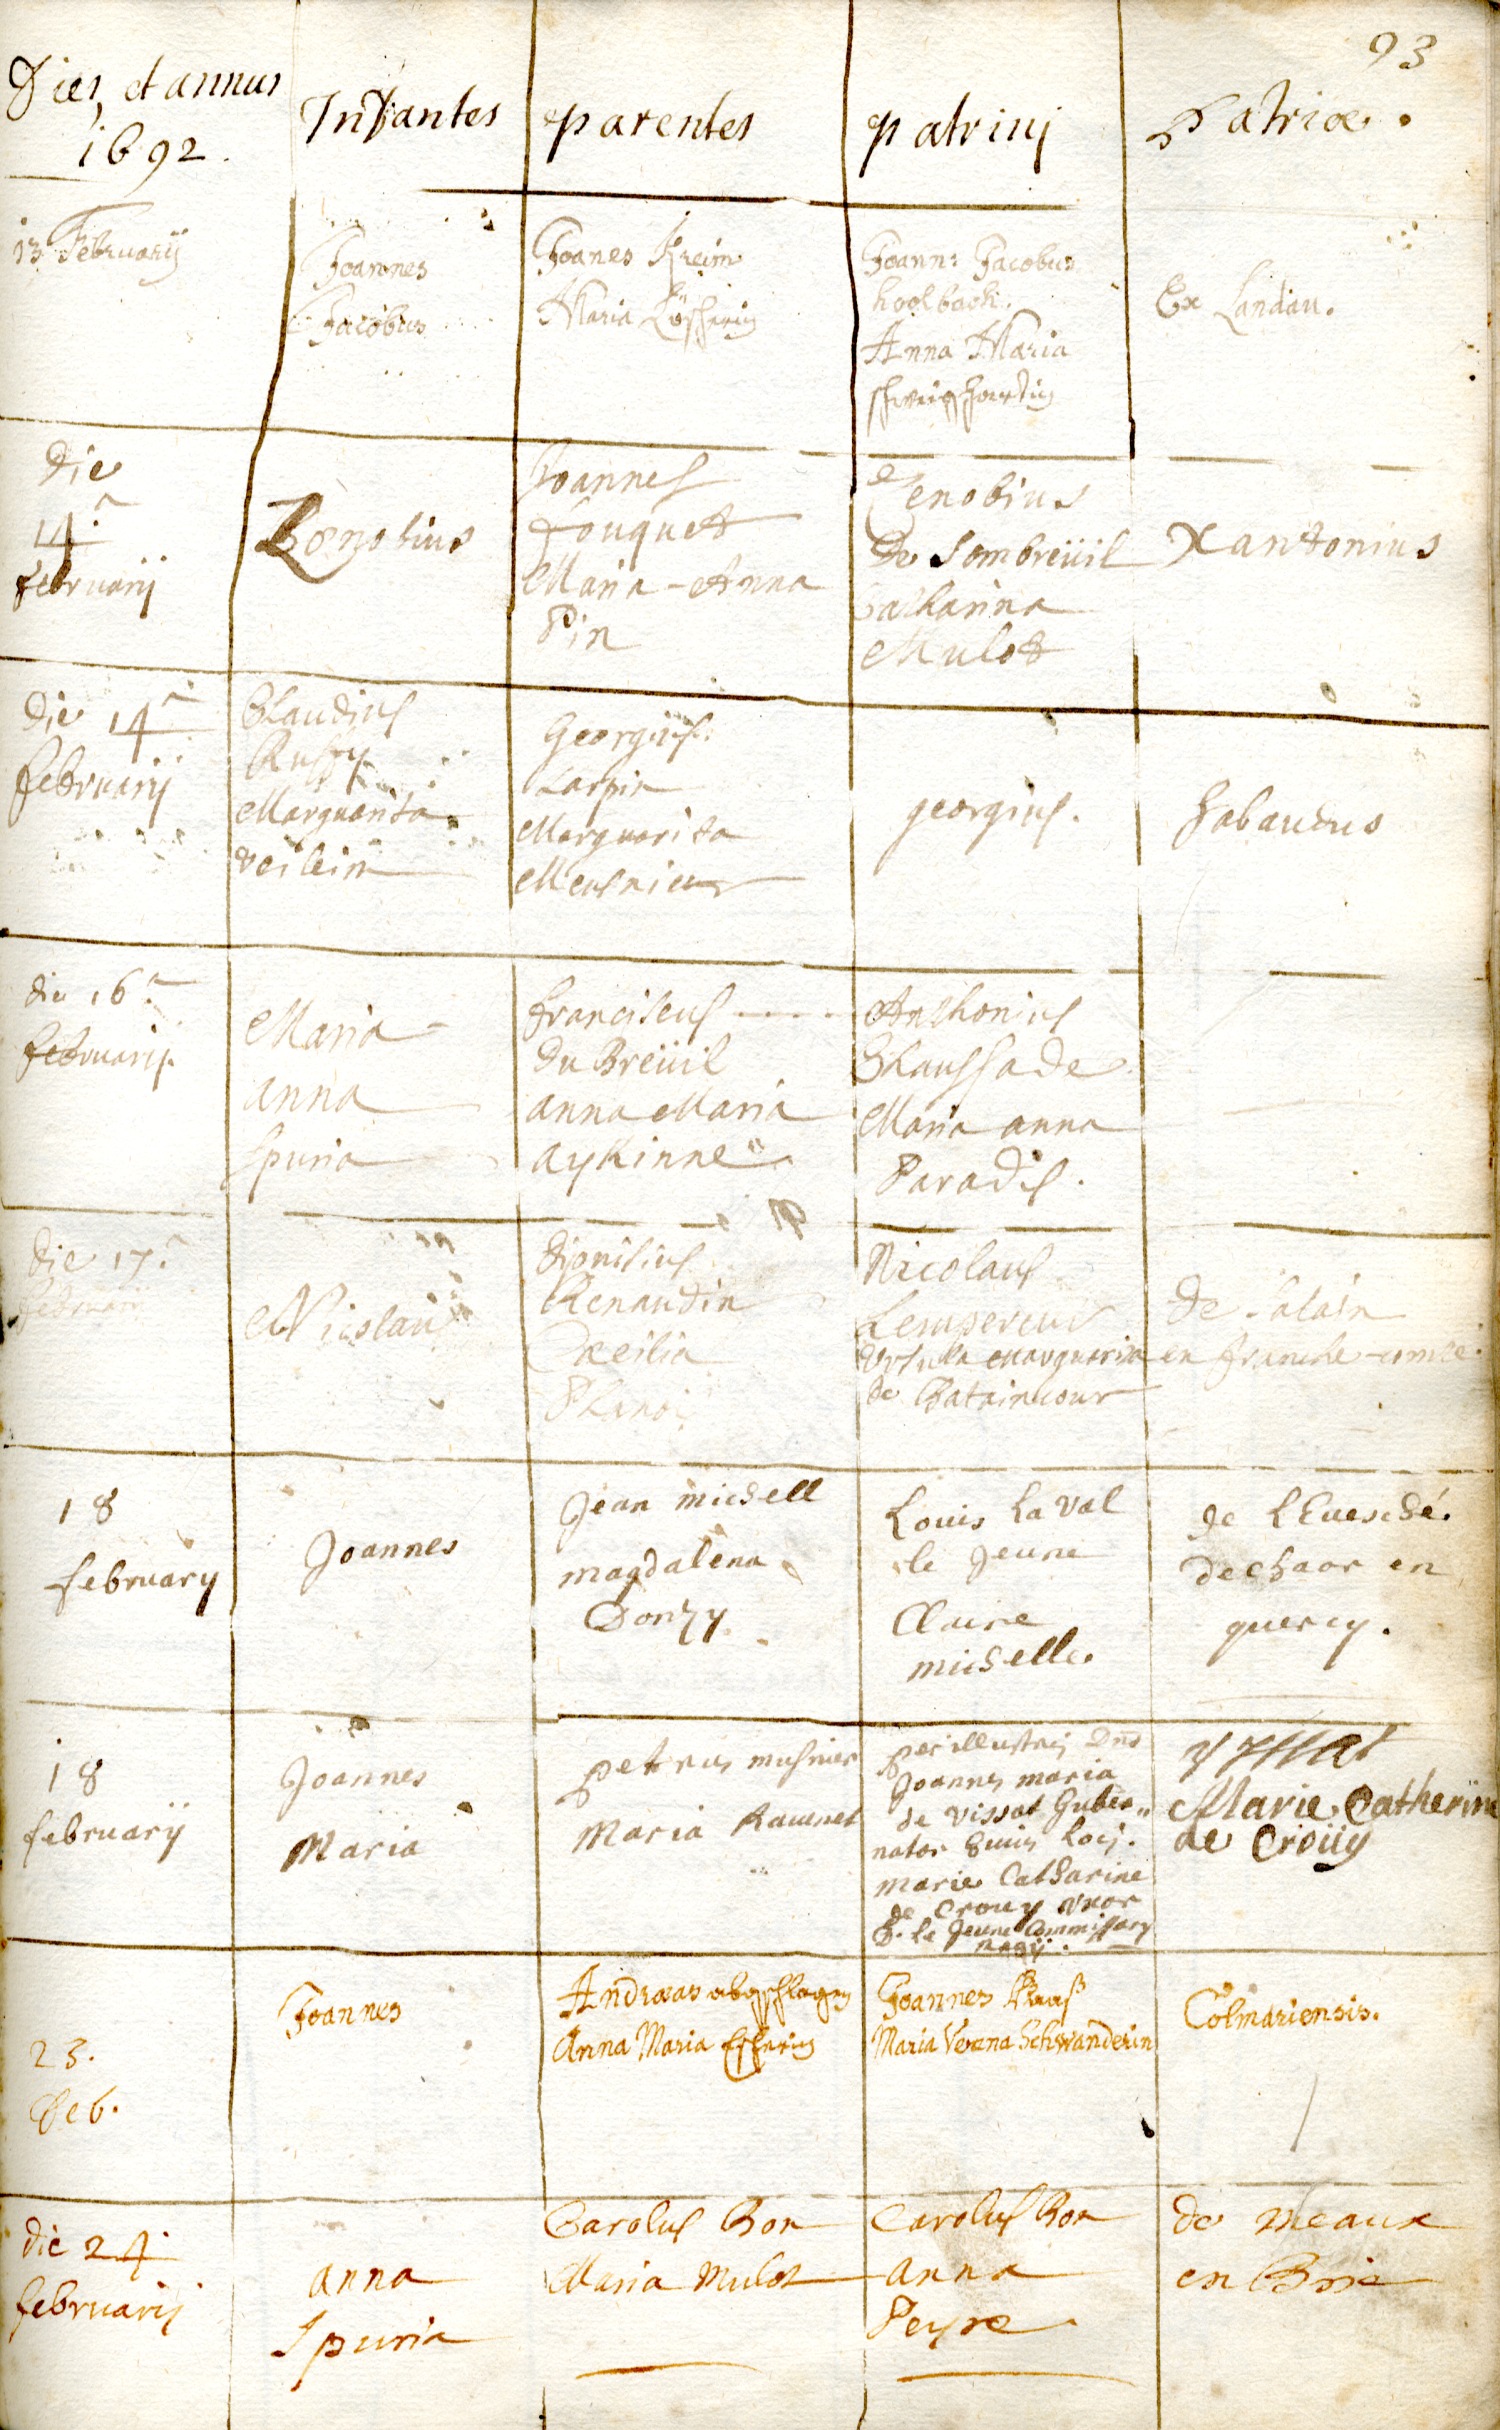 93
Dies et annus
1692.
Infantes
parentes
patrinj
Patriæ.
13 February
Joannes
Jacobus
Joanes Kreim
Maria Löscherin
Joann: Jacobus
holbach.
Anna Maria
schweighardin
Ex Landau.
Die
14.a
februarij
Zenobius
Joannes
fouquet
Maria-Anna
Pin
Zenobius
De Sombreüil
Catharina
Mulot
Xantonius
Die 14a
februarij
Claudius
Ruffy
Marguarita
veilein
Georgius
Larpin
Marguarita
Meusnier
georgius.
Sabaudus
die 16.a
februarij.
Maria
anna
Spuria
franciscus
du Breüil
anna Maria
aykinne
Anthonius
Chaussade
Maria anna
Paradis.
die 17.a
februarij
Nicolaus
dionisius
Renaudin
Cæcilia
Nicolaus
Lempereur
Ursula Marguarita
de Bataincour
de Salain
en franche-comté.
18
february
Joannes
Jean michell
magdalena
Donzy
Louis La Val
le Jeune
Claire
michelle.
de l'Evesché.
de chaor en
quercy.
18
februarÿ
Joannes
Maria
petrus musnier
Maria Ravenet
perillustris Dns
Joannes maria
de vissat Guber"
nator huius Locj.
marie Catharine
de Crouy vxor
D. le Jeune Commissarÿ
regÿ.
Marie Catherine
de Croüy
23.
Feb.
Joannes
Andreas abgschlagen
Anna Maria
Joannes
Maria Verena Schwanderin
Colmariensis.
die 24
februarij
anna
Spuria
Carolus Bon
Maria Mulot
Carolus Bon
anna
Peyre
de Meaux
en Brie